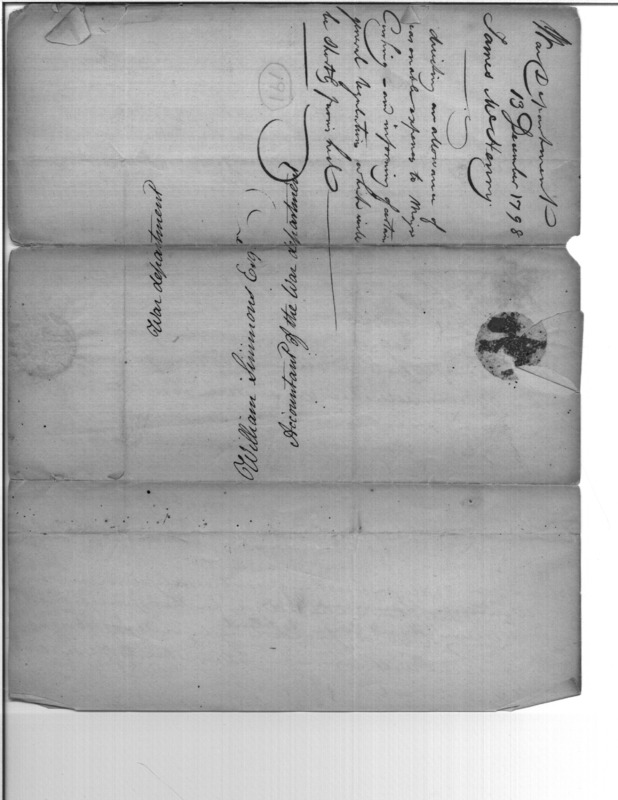 War Department
13 December 1798
James McHenry
directing an allowance of
reasonable expenses to Major
Cushing - and informing of certain
general regulations which will
be shortly furnished
191
William Simmons Esqr
Accountant of the War department
War department